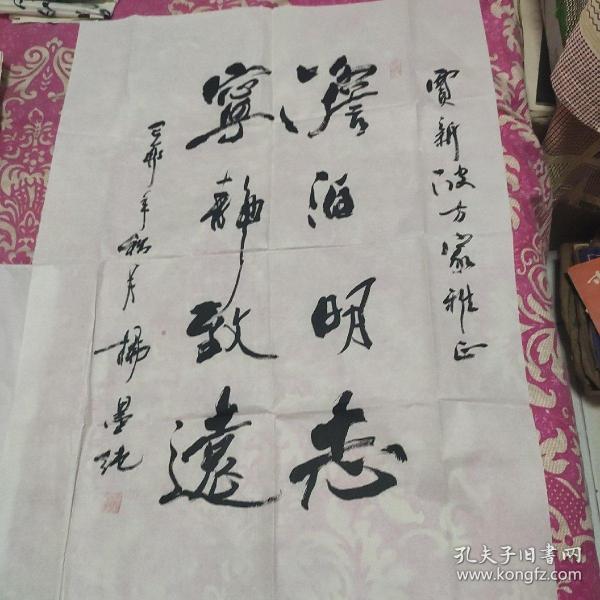 賈新波方家雅正
澹泊明志
寧靜致遠
年秋月 楊墨纯
孔夫子旧書网
www.kongfz.com